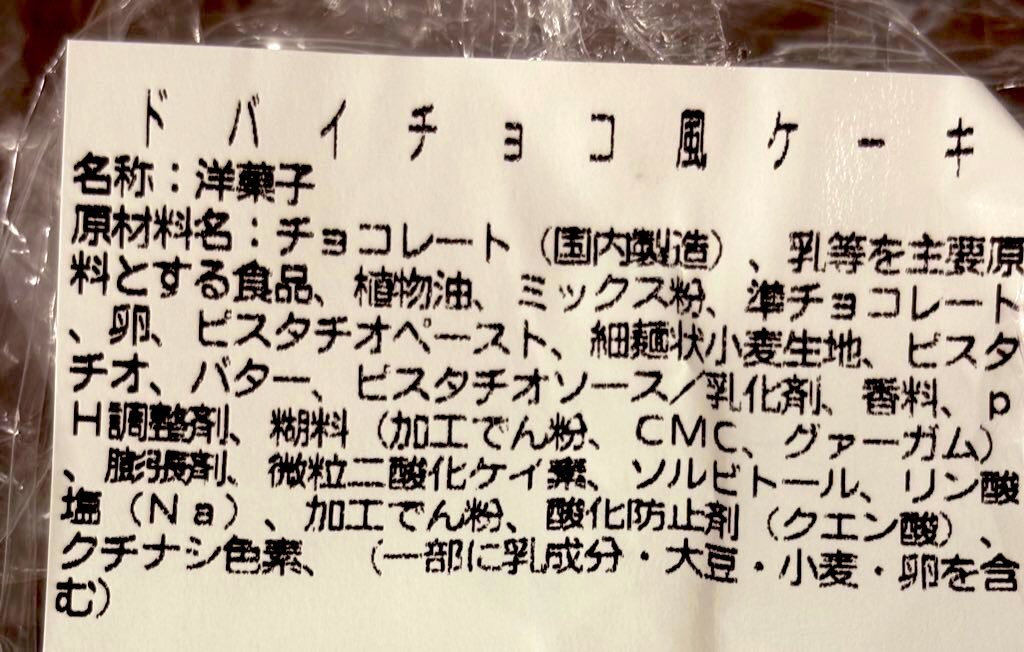 ドバイチョコ風ケーキ
名称：洋菓子
原材料名：チョコレート（国内製造）、乳等を主要原
料とする食品、植物油、ミックス粉、準チョコレート
、卵、ピスタチオペースト、細麺状小麦生地、ピスタ
チオ、バター、ピスタチオソース／乳化剤、香料、ｐ
Ｈ調整剤、糊料（加工でん粉、ＣＭＣ、グァーガム）
、膨張剤、微粒二酸化ケイ素、ソルビトール、リン酸
塩（Ｎａ）、加工でん粉、酸化防止剤（クエン酸）、
クチナシ色素、（一部に乳成分・大豆・小麦・卵を含
む）